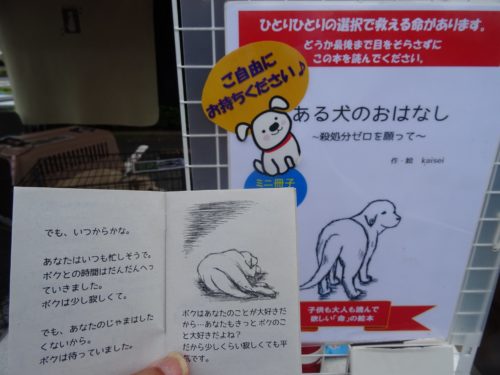 ひとりひとりの選択で救える命があります。
どうか最後まで目をそらさずに
この本を読んでください。
ご自由に
お持ちください♪
ある犬のおはなし
~殺処分ゼロを願って~
作・絵 kaisei
ミニ冊子
子供も大人も読んで
欲しい「命」の絵本
でも、いつからかな。
あなたはいつも忙しそうで。
ボクとの時間はだんだんへっ
ていきました。
ボクは少し寂しくて。
でも、あなたのじゃまはした
くないから。
ボクは待っていました。
ボクはあなたのことが大好きだ
から…あなたもきっとボクのこ
と大好きだよね?
だから少しくらい寂しくても平
気です。